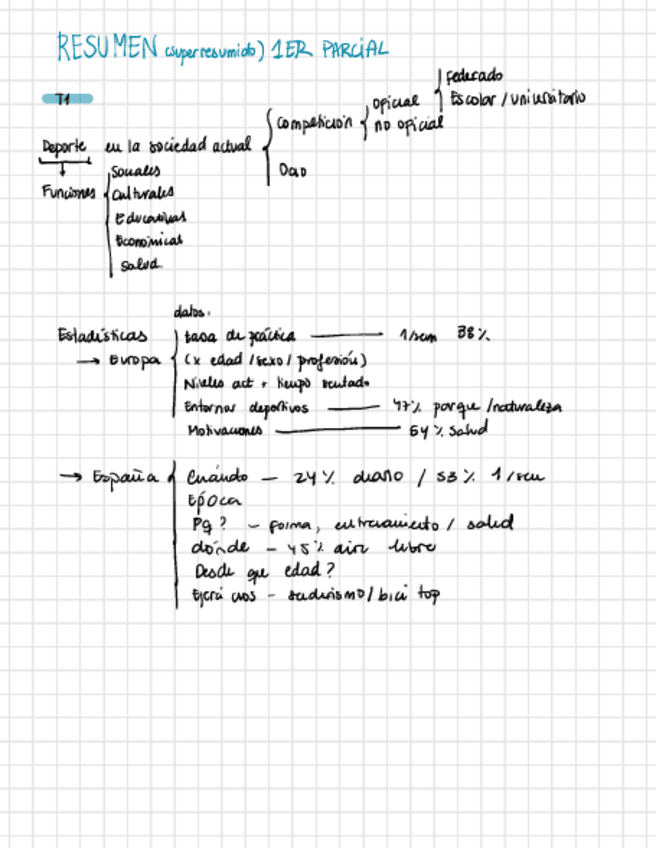 RESUMEN (super resumido) 1ER PARCIAL
T1
Deporte en la sociedad actual
Competición
oficial
Federado
Escolar / universitario
no oficial
Ocio
Funciones
Sociales
Culturales
Educativas
Económicas
Salud.
datos.
Estadísticas
→ Europa
tasa de práctica — 1/sem 38%
(x edad / sexo / profesión)
Niveles act + tiempo sentado
Entornos deportivos — 47% parque / naturaleza
Motivaciones — 54% salud
→ España
Cuándo — 24% diario / 53% 1/sem
Época
Pq? – forma, entrenamiento / salud
dónde – 45% aire libre
Desde que edad?
– senderismo / bici top